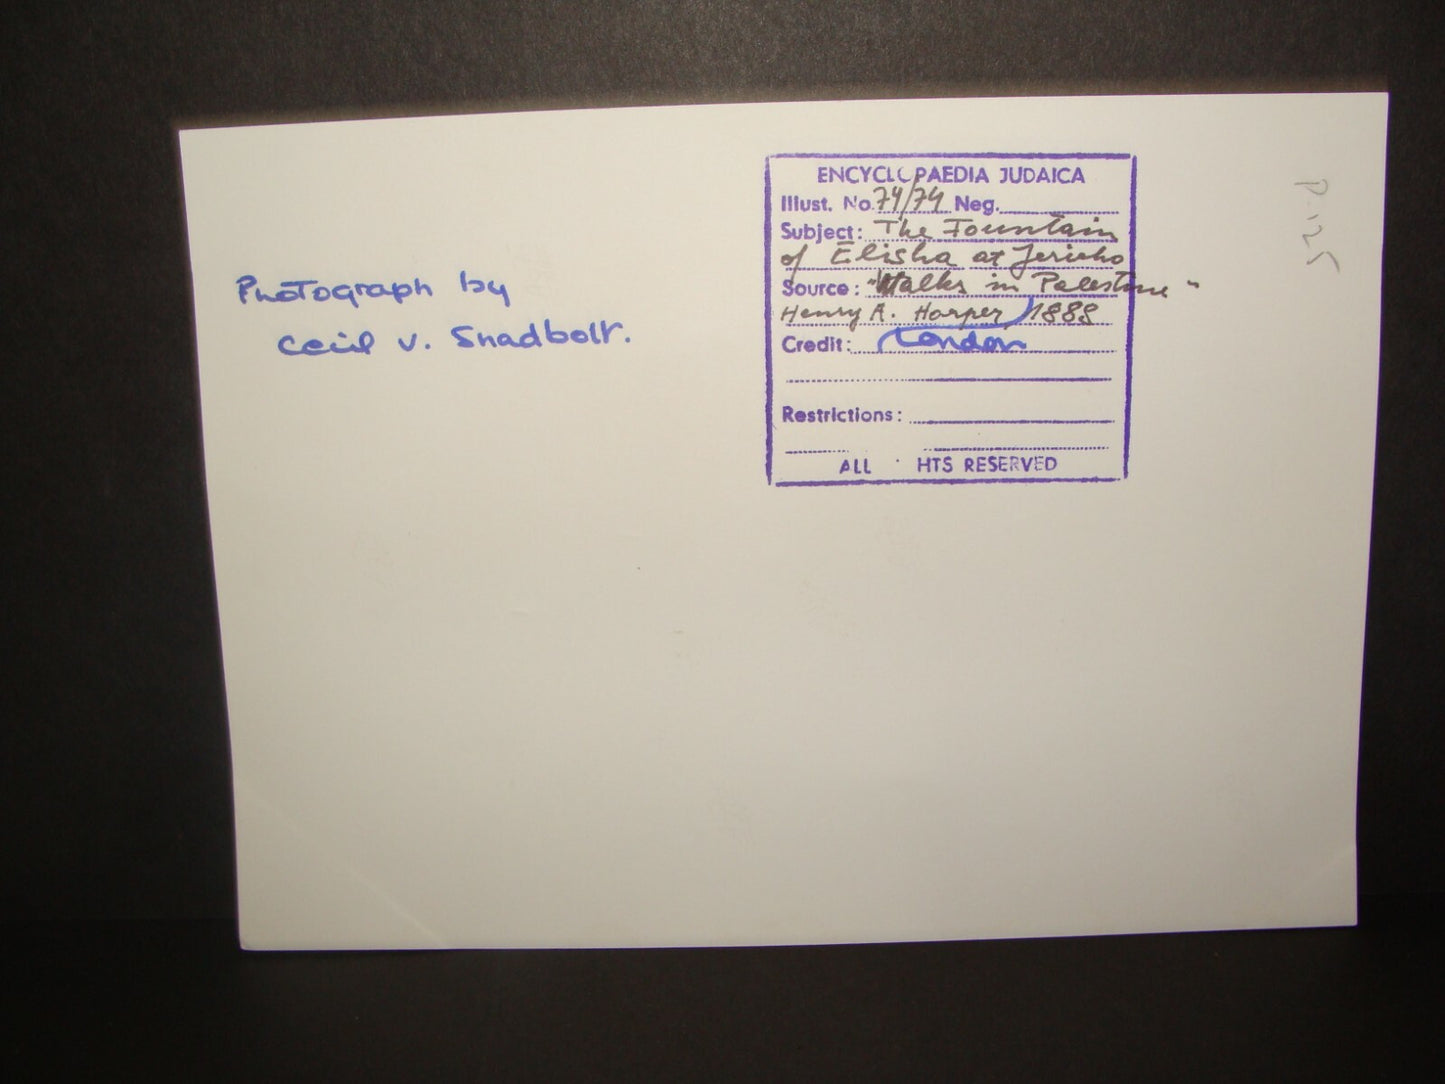 Photograph by
Cecil V. Shadbolt.
ENCYCLOPAEDIA JUDAICA
Illust. No. 74/74 Neg.
Subject: The Fountain
of Elisha at Jericho
Source: "Walks in Palestine"
Henry A. Harper, 1888
Credit: London
Restrictions:
ALL HTS RESERVED
P. 125